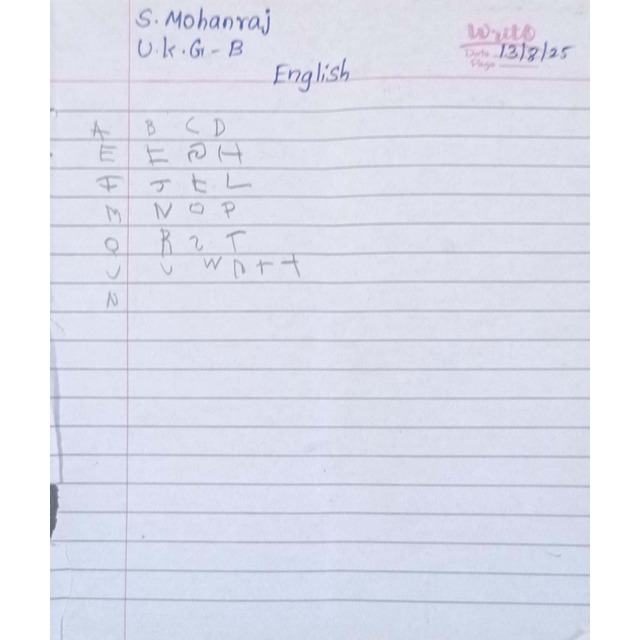 S. Mohanraj
U.K.G - B
Write
Date 13/8/25
Page
English
A B C D
E E H
F J t L
M N O P
Q R 2 T
U U W n + t
N